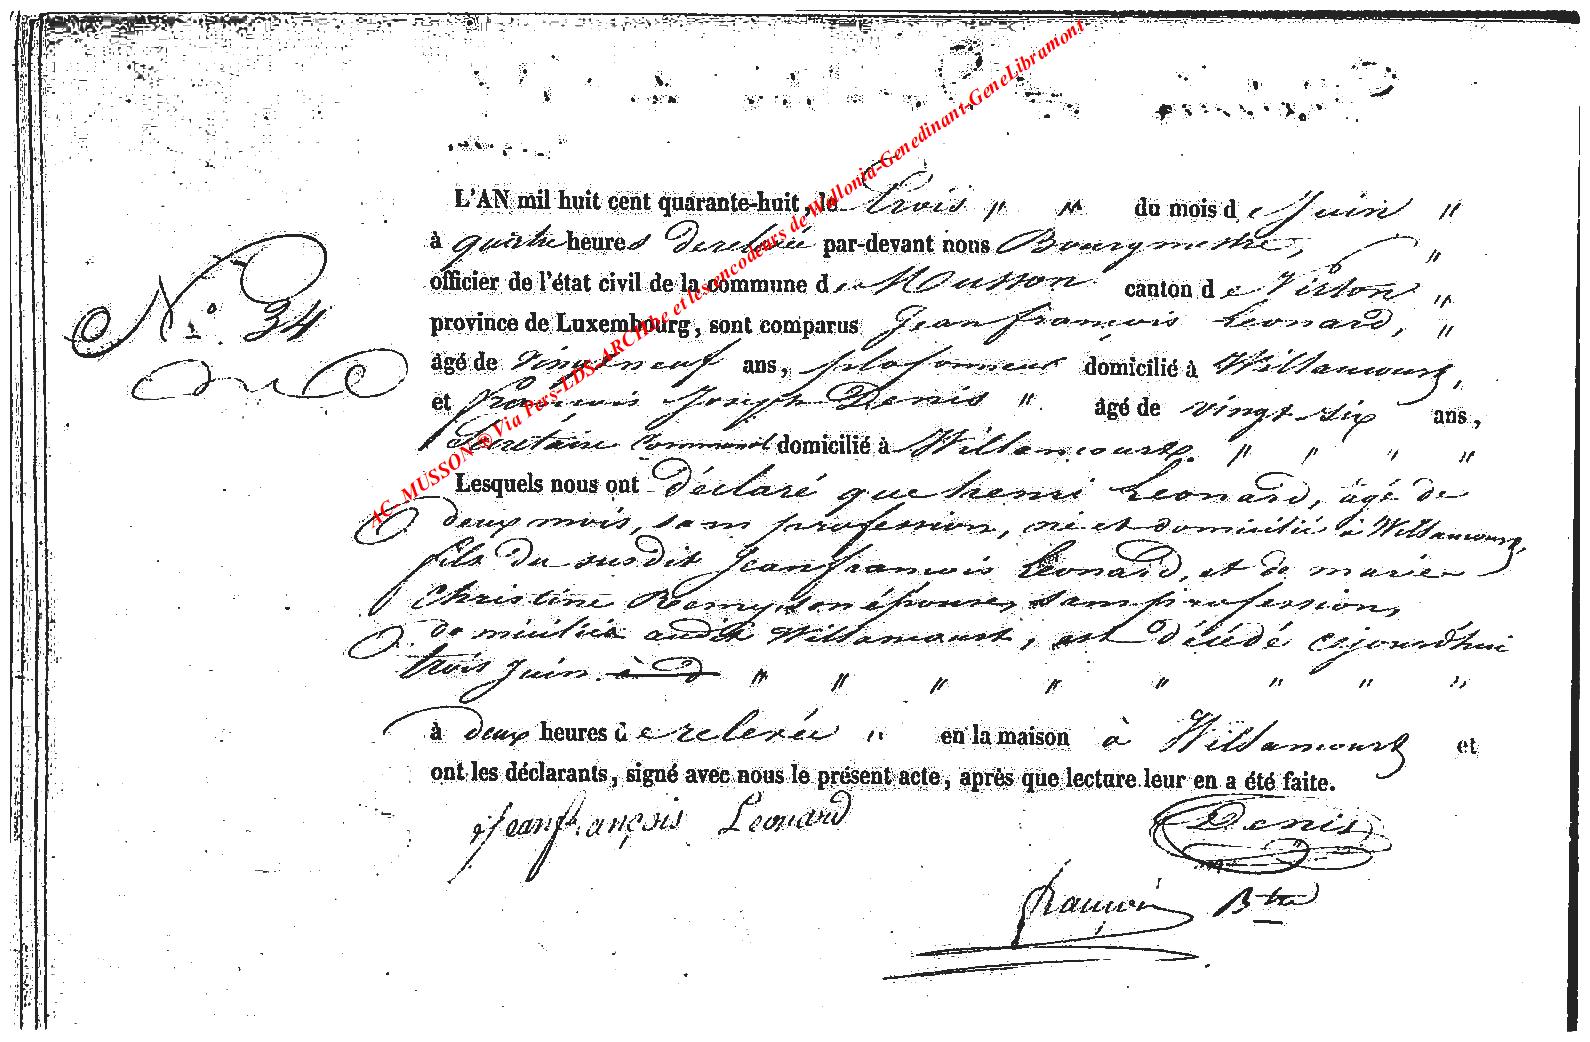 L'AN mil huit cent quarante-huit, le trois " " du mois de Juin "
à quatre heures de relevée par-devant nous Bourgmestre, "
officier de l'état civil de la commune de Musson canton de Virton "
N.° 34
province de Luxembourg, sont comparus Jean françois Leonard, "
âgé de vingt neuf ans, plafonneur domicilié à Willancourt,
et françois Joseph Denis " âgé de vingt six ans,
Secretaire communal domicilié à Willancourt. " " " "
Lesquels nous ont déclaré que henri Leonard, âgé de
deux mois, sans profession, né et domicilié à Willancourt,
fils du susdit Jean françois Leonard, et de marie
Christine Remy, son épouse, sans profession,
domiciliée audit Willancourt, est décédé cejourd'hui
trois Juin à " " " " " " " "
à deux heures de relevée " en la maison à Willancourt et
ont les déclarants, signé avec nous le présent acte, après que lecture leur en a été faite.
Jean françois Leonard Denis
françois Btre
AC- MUSSON ® Via Pers-LDS-ARCHbe et les encodeurs de Wallonia-Genedinant-GeneLibramont